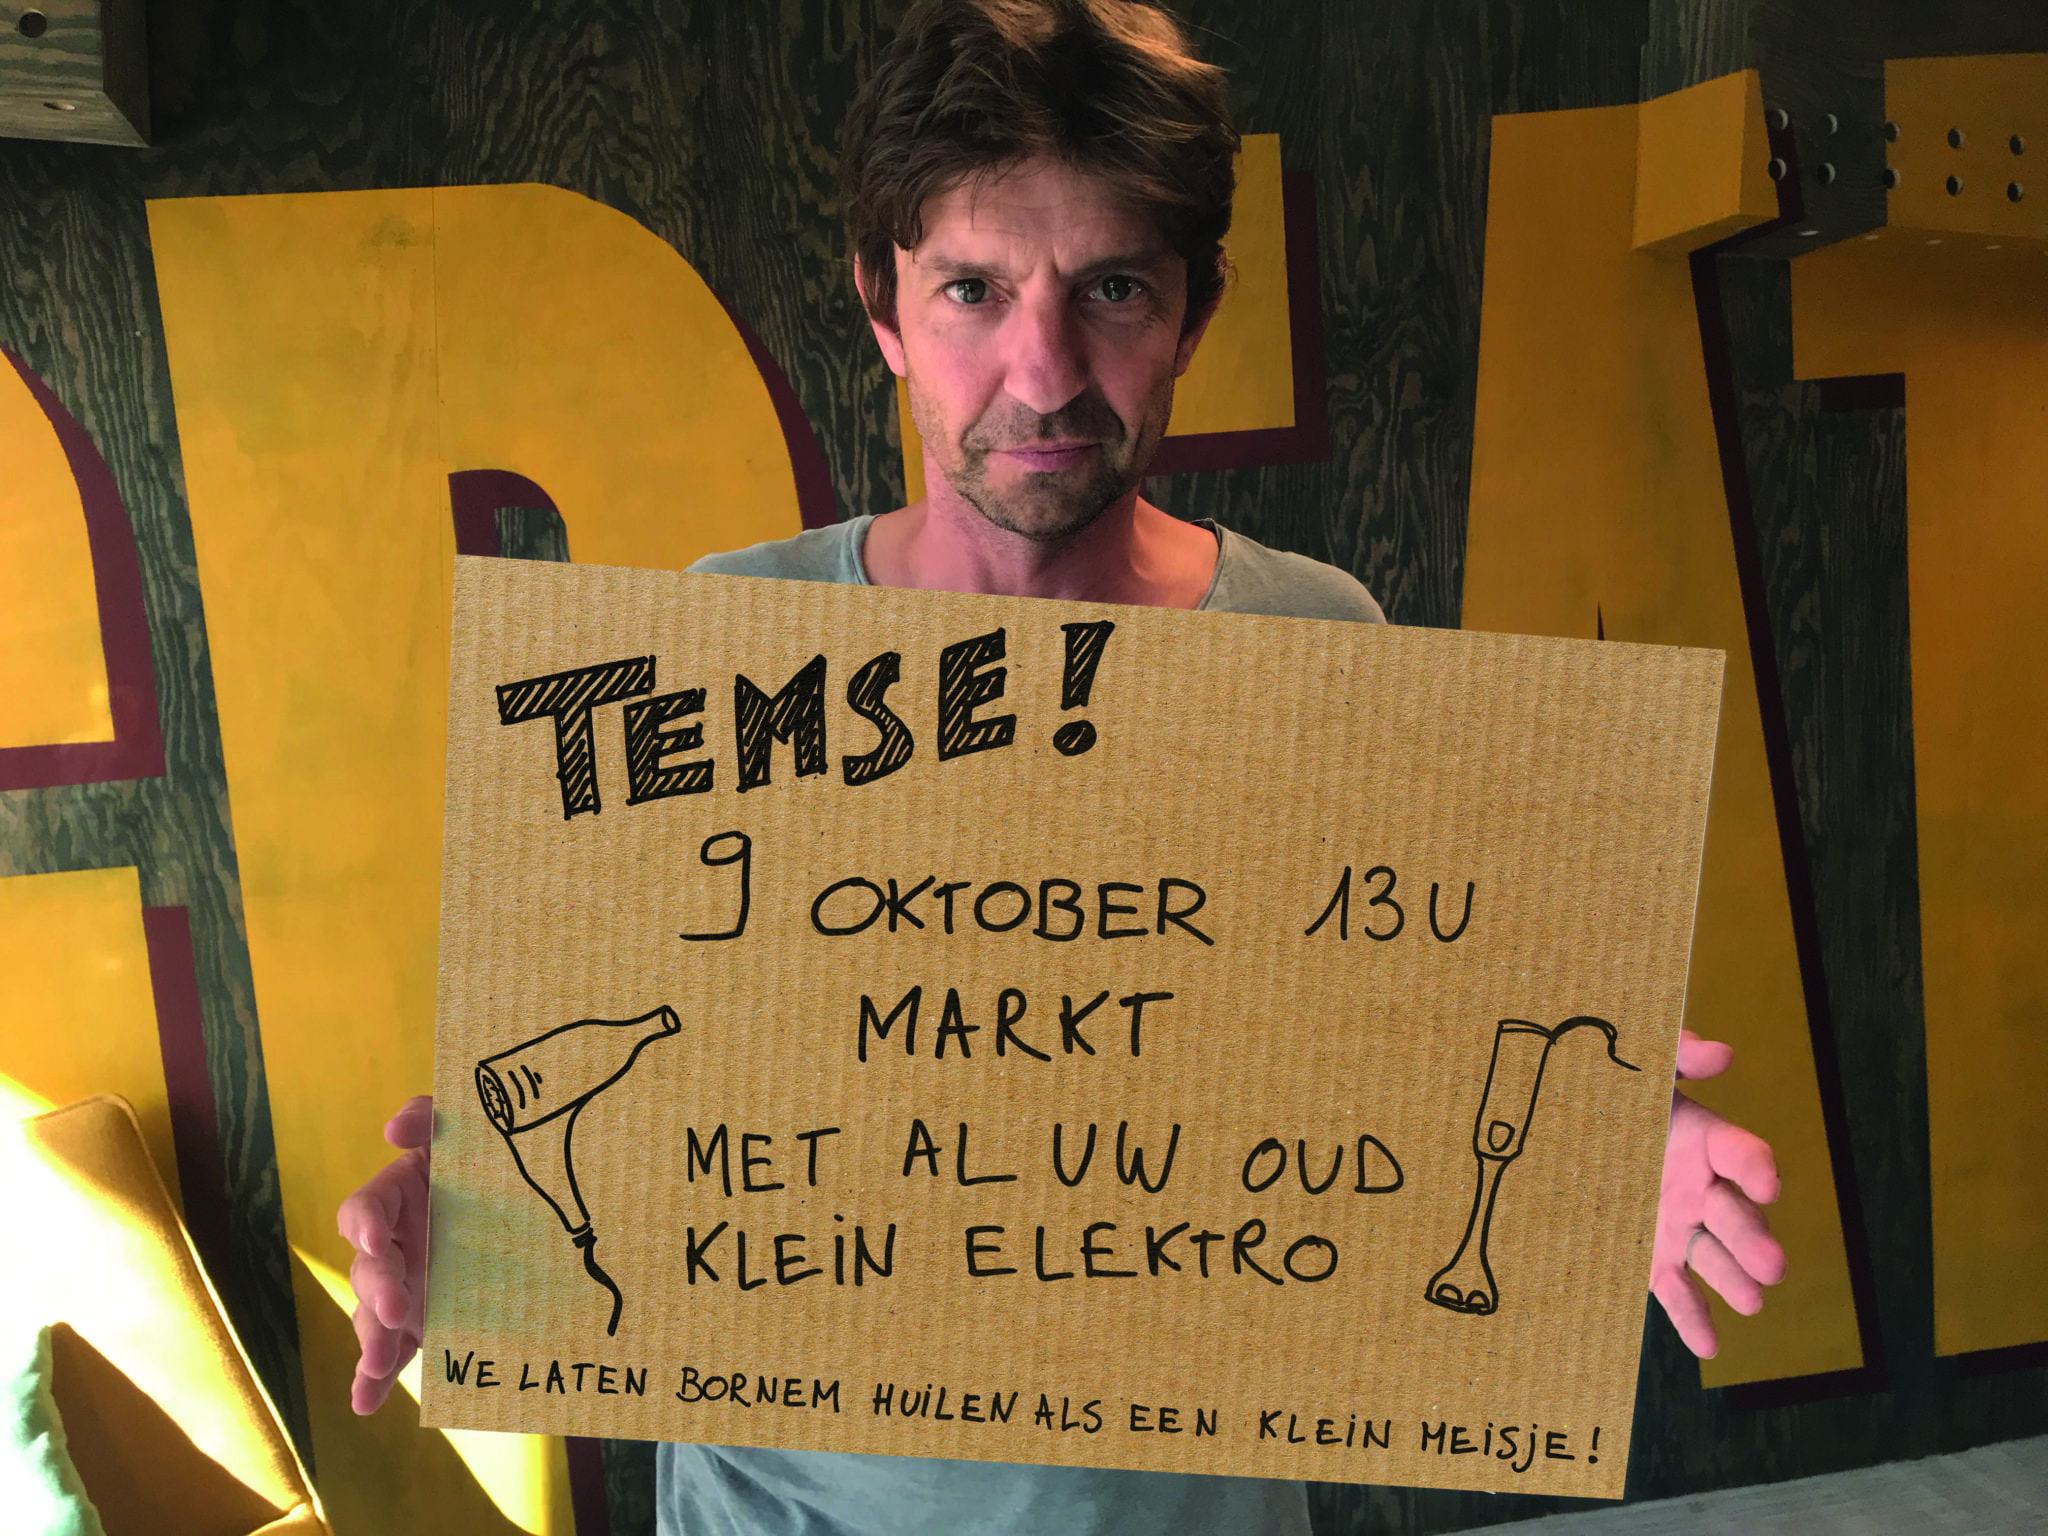 TEMSE!
9 OKTOBER 13U
MARKT
MET AL UW OUD
KLEIN ELEKTRO
WE LATEN BORNEM HUILEN ALS EEN KLEIN MEISJE!